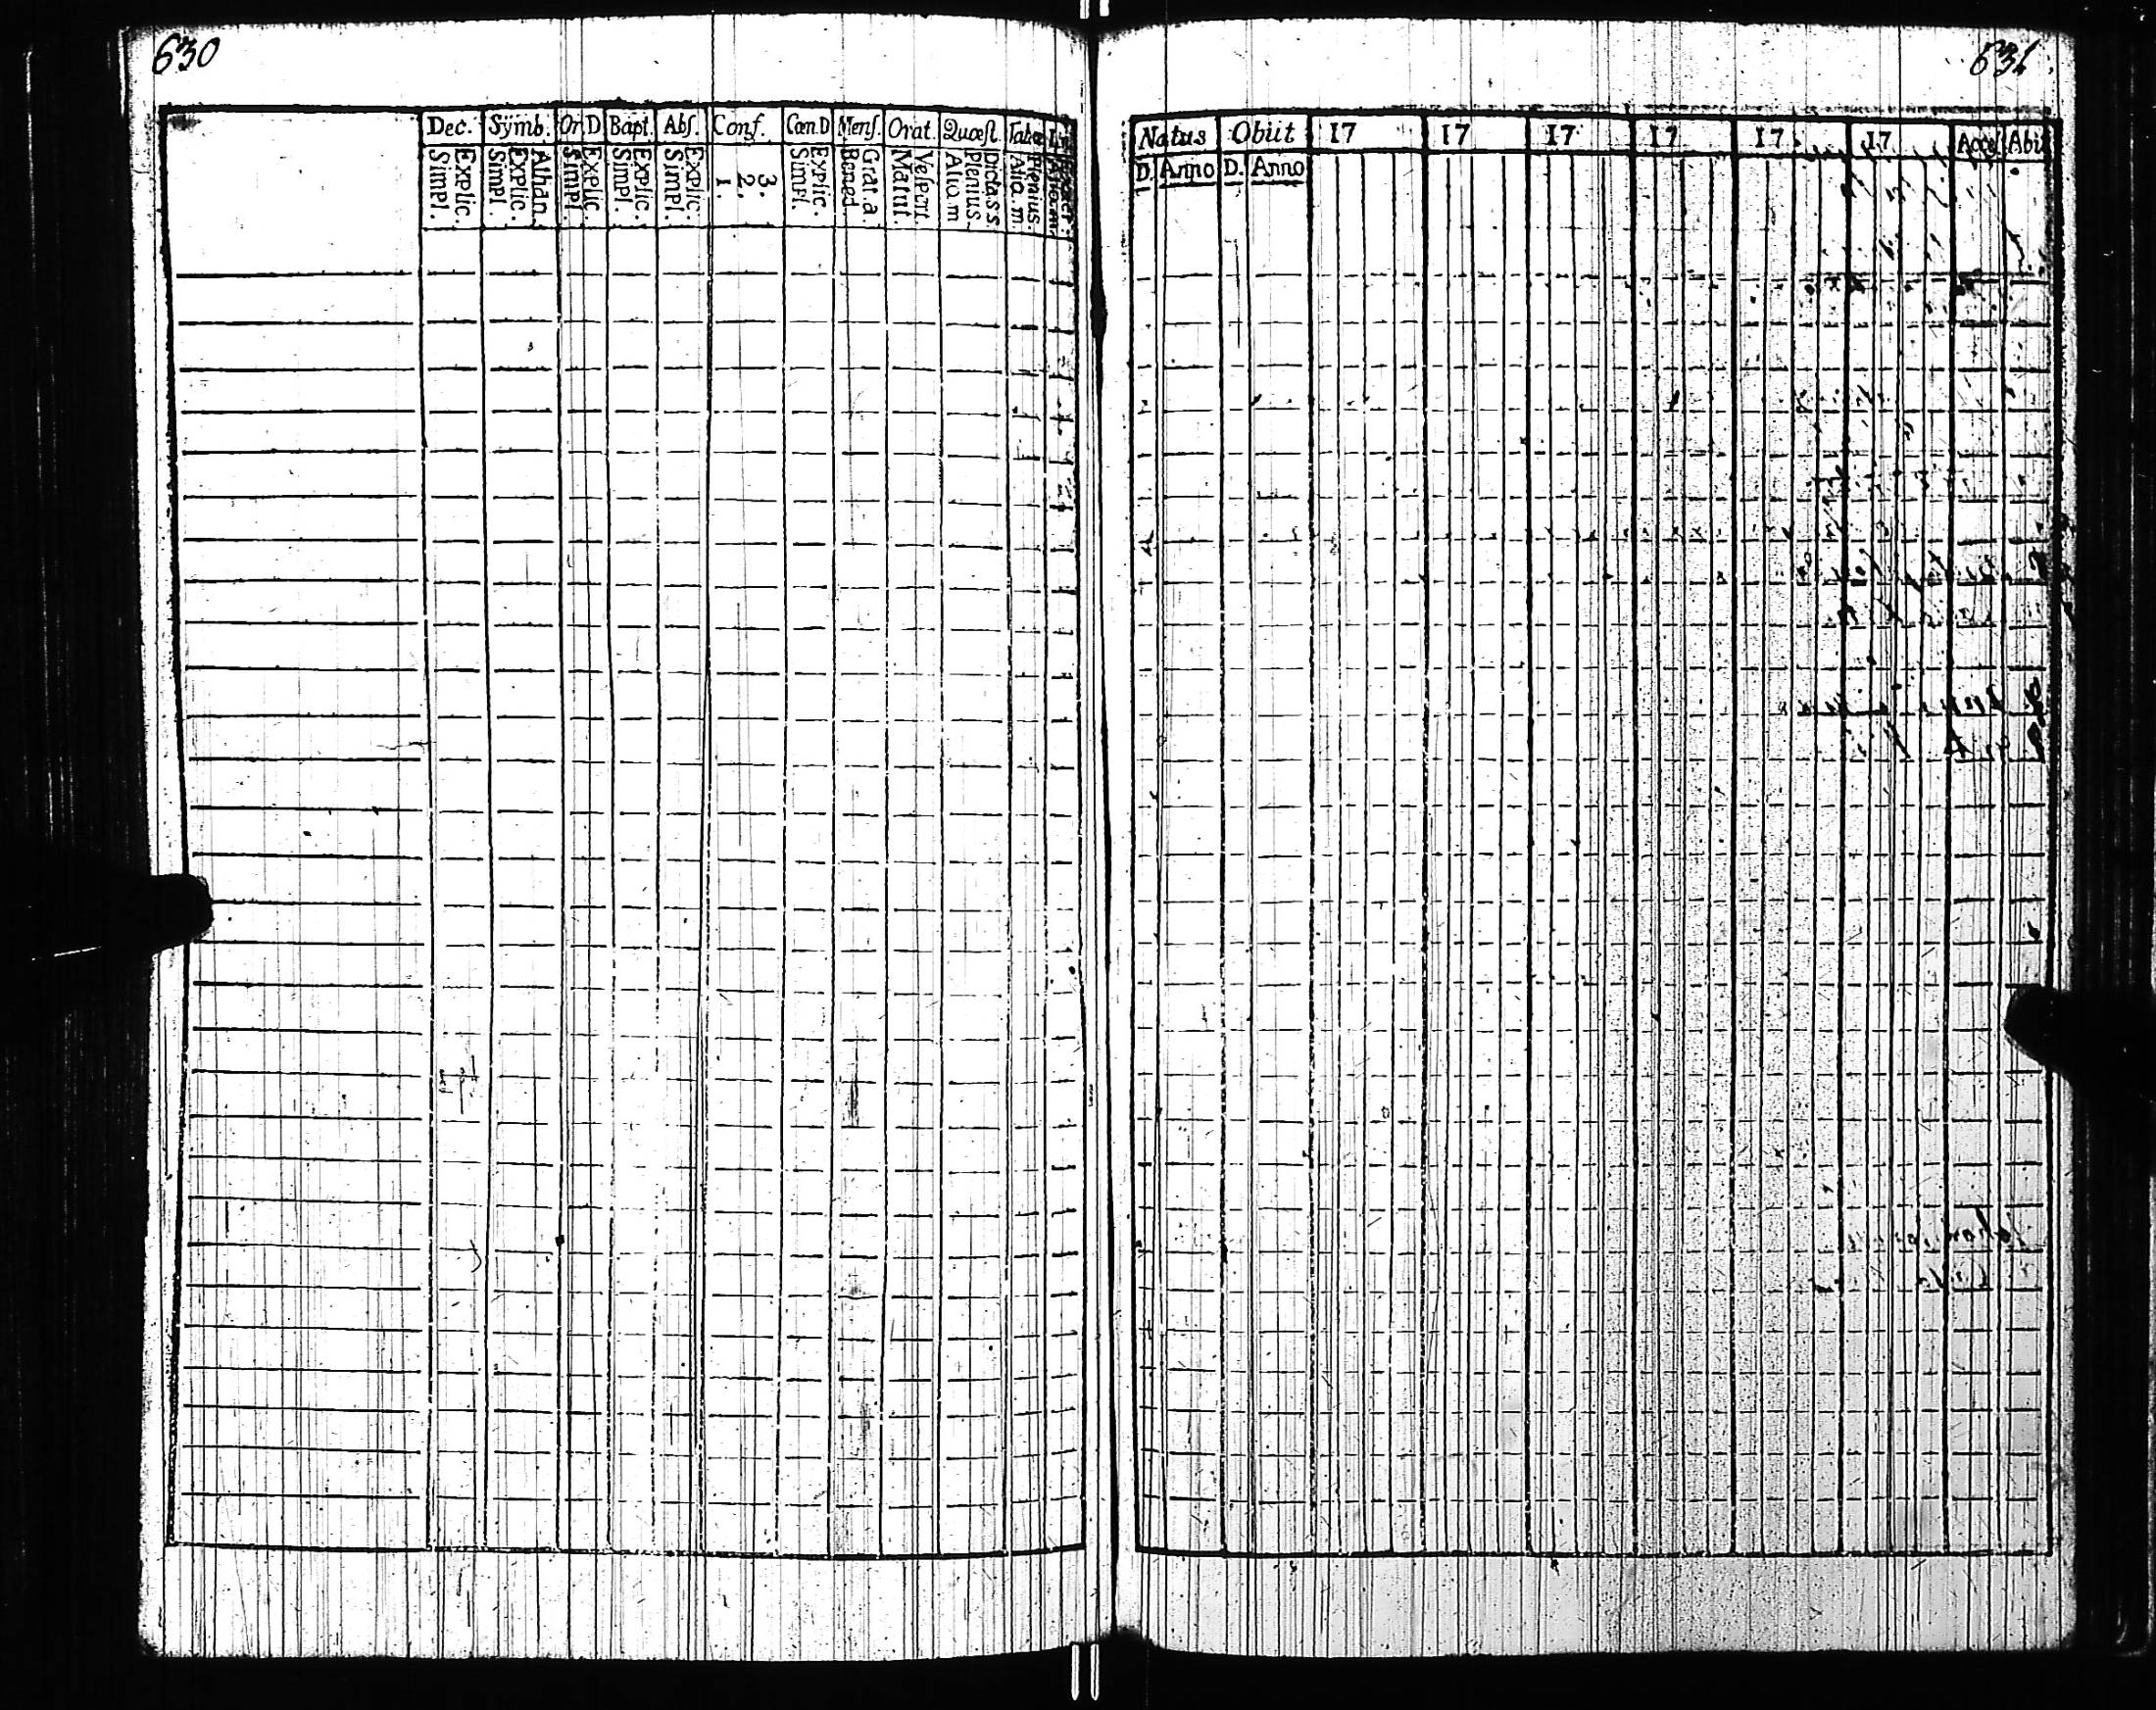 630
Dec. Symb. Or D Bapt. Abs. Conf. Cœn.D Mens. Orat. Quæst. Tabæ
Explic. Simpl.
Athan. Explic. Simpl.
Explic. Simpl.
Explic. Simpl.
Explic. Simpl.
3. 2. 1.
Explic. Simpl.
Grat.a. Bened.
Vespert. Matut.
Dicta.s.s. Plenius. Alio.m
Plenius. Alio.m.
631
Natus Obiit 17 17 17 17 17 17 Acce Abi
D. Anno D. Anno